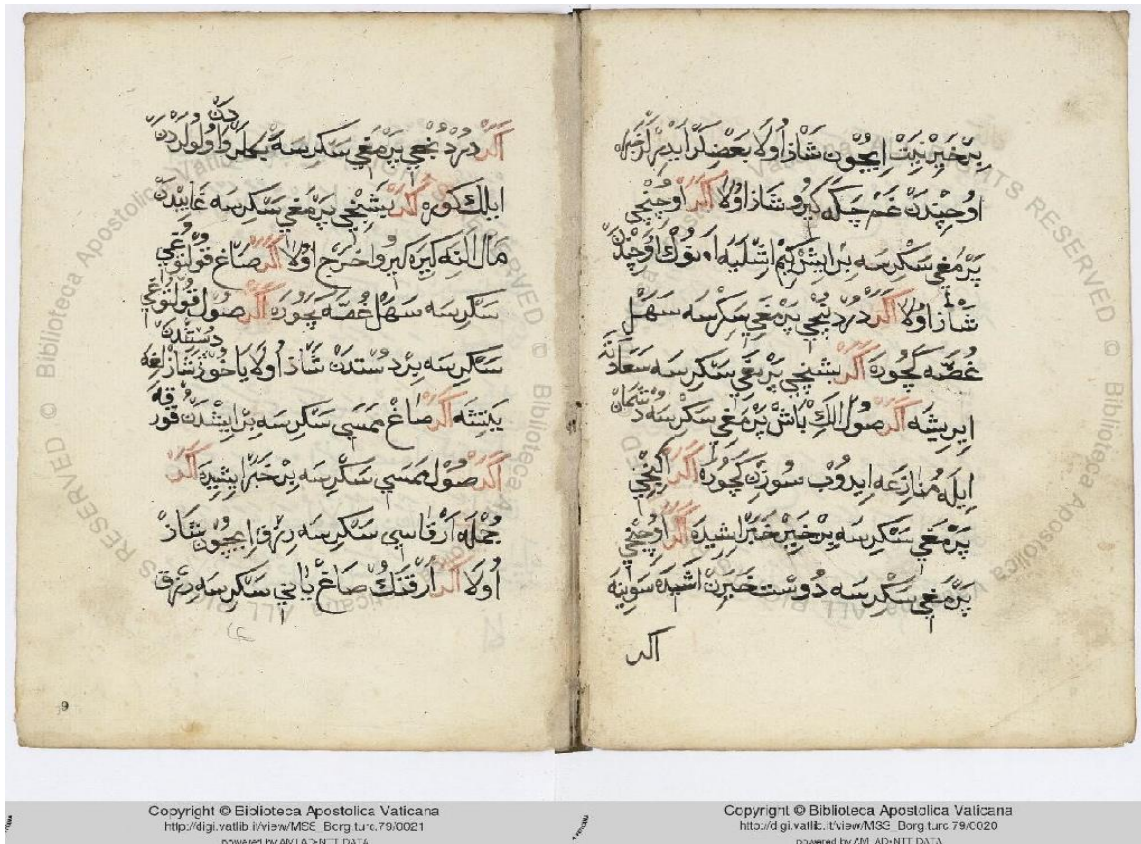 بِرْ خَيِرْ بِيتْ اِيچُونْ شَاذْ اُولَا بَعْضِلَرْ اَيْدِرْلَرْ خَيِرْ
اوُچِنْدَنْ غَمْ چَكَه كَيْرُو شَاذْ اُولَا اَكَرْ اوُچِنْجِي
پَرْمَغِي سَكْرِسَه بِرْ اِيشْ كِيمْ اِشْلَيَه اَنُوكْ اوُچِنْدَنْ
شَاذْ اُولَا اَكَرْ دَرْدُنْجِي پَرْمَغِي سَكْرِسَه سَهَلْ
غُصَّه كَچُورَه اَكَرْ بَشِنْجِي پَرْمَغِي سَكْرِسَه سَعَادَتَه
اِيرِيشَه اَكَرْ صُولْ اَلِكْ بَاشْ پَرْمَغِي سَكْرِسَه دُشْمَانْ
اِيلَه مُنَازَعَه اِيدُوبْ سُوزِنْ كَچُورَه اَكَرْ اِكِنْجِي
پَرْمَغِي سَكْرِسَه بِرْ خَيِرْ خَبَرْ اِشِيدَه اَكَرْ اوُچِنْجِي
پَرْمَغِي سَكْرِسَه دُوسْتْ خَبَرِنْ اِشِيدَه سَوِينَه
اكر
اَكَرْ دَرْدُنْجِي پَرْمَغِي سَكْرِسَه بَكْلَرْدَنْ وَاُولُولَرْدَنْ
اَيُلِكْ كُورَه اَكَرْ بَشِنْجِي پَرْمَغِي سَكْرِسَه غَايِبْدَنْ
مَالْ اَلِنَه كِيرَه كَيْرُو خَرْجْ اُولَا اَكَرْ صَاغْ قُولْتُوغِي
سَكْرِسَه سَهَلْ غُصَّه كَچُورَه اَكَرْ صُولْ قُولْتُوغِي
سَكْرِسَه بِرْ دُوسْتْدَنْ شَاذْ اُولَا يَاخُوذْ شَاذْلِغَه
يَتِشَه اَكَرْ صَاغْ مَمَسِي سَكْرِسَه بِرْ اِيشْدَنْ قُورْقَه
اَكَرْ صُولْ مَمَسِي سَكْرِسَه بِرْ خَبَرْ اِشِيدَه اَكَرْ
جُمْلَه اَرْقَاسِي سَكْرِسَه رِزْقْ اِيچُونْ شَاذْ
اُولَا اَكَرْ اَرْقَنُكْ صَاغْ يَانِي سَكْرِسَه رِزْقْ
9
Copyright © Biblioteca Apostolica Vaticana
http://digi.vatlib.it/view/MSS_Borg.turc.79/0021
powered by AMLAD-NTT DATA
Copyright © Biblioteca Apostolica Vaticana
http://digi.vatlib.it/view/MSS_Borg.turc.79/0020
powered by AMLAD-NTT DATA